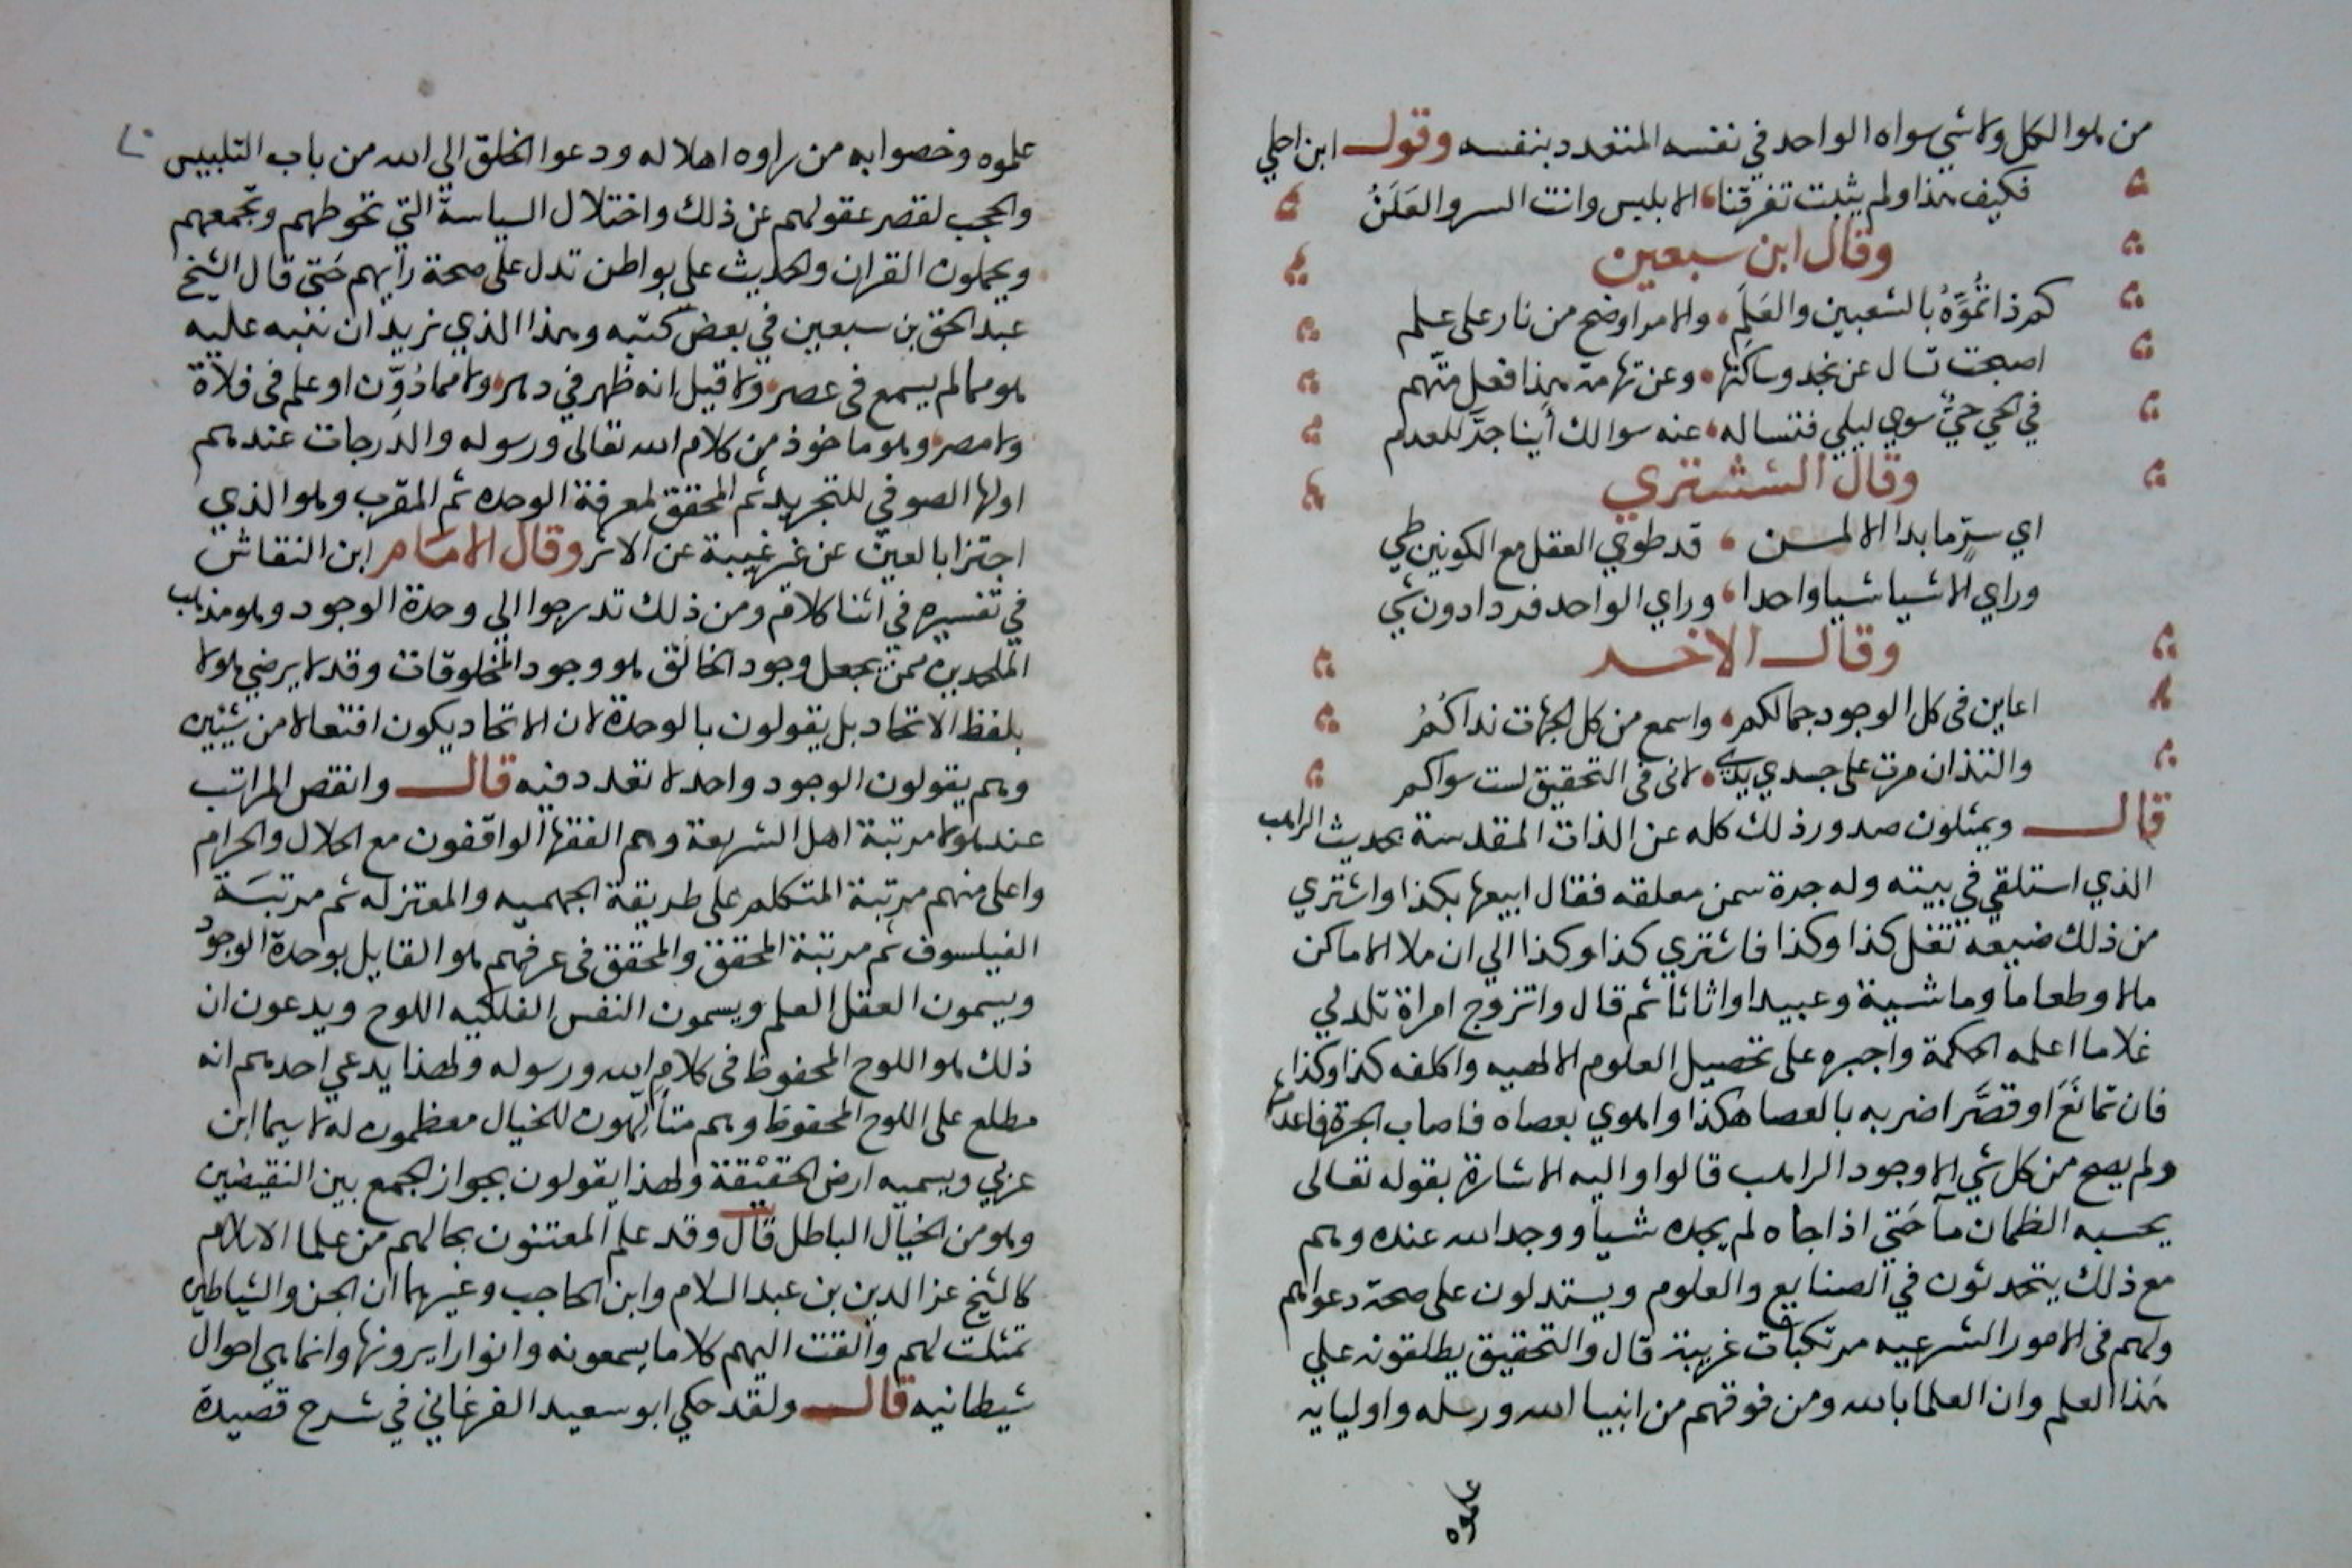 من هو الكل ولا شي سواه الواحد في نفسه المتعدد بنفسه وقول ابن احلي
فكيف هذا ولم يثبت تفرقنا الا بليس وانت السر والعَلَنُ
وقال ابن سبعين
كم ذا تُمَوِّهُ بالشعبين والعَلَمِ والامر اوضح من نار على علم
اصبحت تسال عن نجد وساكنها وعن تهامة هذا فعل متّهم
في الحي حيٌّ سوي ليلي فتساله عنه سوالك أينا جدّ للعدم
وقال الششتري
اي سرّ ما بدا الا لمن قد طوي العقل مع الكونين طي
وراي الاشيا شيا واحدا وراي الواحد فردا دون شي
وقال الاخر
اعاين في كل الوجود جمالكم واسمع من كل الجهات نداكُمُ
والتذ ان مرت على جسدي يدي لاني في التحقيق لست سواكم
قال ويمثلون صدور ذلك كله عن الذات المقدسة بحديث الراهب
الذي استلقي في بيته وله جرة سمن معلقه فقال ابيعها بكذا واشتري
من ذلك ضيعه تغل كذا وكذا فاشتري كذا وكذا الي ان ملا الاماكن
مالا وطعاما وماشية وعبيدا واثاثا ثم قال واتزوج امراة تلد لي
غلاما اعلمه الحكمة واجبره على تحصيل العلوم الالهيه واكلفه كذا وكذا
فان تمانَعَ او قصَّر اضربه بالعصا هكذا واهوي بعصاه فاصاب الجرة فاعدمها
ولم يصح من كل شي الا وجود الراهب قالوا واليه الاشارة بقوله تعالى
يحسبه الظمان مآ حَتي اذا جاه لم يجده شيا ووجد الله عنده وهم
مع ذلك يتحدثون في الصنايع والعلوم ويستدلون على صحة دعواهم
ولهم في الامور الشرعيه مرتكبات غريبة قال والتحقيق يطلقونه علي
هذا العلم وان العلما بالله ومن فوقهم من انبيا الله ورسله واوليايه
علموه
علموه وخصوا به من راوه اهلا له ودعوا الخلق الي الله من باب التلبيس
والحجب لقصر عقولهم عن ذلك واختلال السياسة التي تحوطهم وتجمعهم
ويحملون القران والحديث على بواطن تدل على صحة رايهم حَتى قال الشيخ
عبد الحق بن سبعين في بعض كتبه وهذا الذي نريد ان ننبه عليه
هو مما لم يسمع في عصر ولا قيل انه ظهر في دهر ولا مما دُوِّن او علم في فلاة
ولا مصر وهو ماخوذ من كلام الله تعالى ورسوله والدرجات عندهم
اولها الصوفي للتجريد ثم المحقق لمعرفة الوحده ثم المقرب وهو الذي
اجتزا بالعين عن غر غيبة عن الاثر وقال الامام ابن النقاش
في تفسيره في اثنا كلام ومن ذلك تدرجوا الي وحدة الوجود وهو مذهب
الملحدين ممن يجعل وجود الخالق هو وجود المخلوقات وقد لا يرضي هولا
بلفظ الاتحاد بل يقولون بالوحدة لان الاتحاد يكون افتعالا من شيئين
وهم يقولون الوجود واحد لا تعدد فيه قال وانقص المراتب
عند هولا مرتبة اهل الشريعة وهم الفقها الواقفون مع الحلال والحرام
واعلى منهم مرتبة المتكلم على طريقة الجهميه والمعتزله ثم مرتبَة
الفيلسوف ثم مرتبة المحقق والمحقق في عرفهم هو القايل بوحدة الوجود
ويسمون العقل العلم ويسمون النفس الفلكيه اللوح ويدعون ان
ذلك هو اللوح المحفوظ في كلام الله ورسوله ولهذا يدعي احدهم انه
مطلع على اللوح المحفوظ وهم متألهون للخيال معظمون له لا سيما ابن
عربي ويسميه ارض الحقيقة ولهذا يقولون بجواز الجمع بين النقيضين
وهو من الخيال الباطل قال وقد علم المعتنون بحالهم من علما الاسلام
كالشيخ عز الدين بن عبد السلام وابن الحاجب وغيرهما ان الجن والشياطين
تمثلت لهم والقت اليهم كلاما يسمعونه وانوارا يرونها وانما هي احوال
شيطانيه قال ولقد حكي ابو سعيد الفرغاني في شرح قصيدة